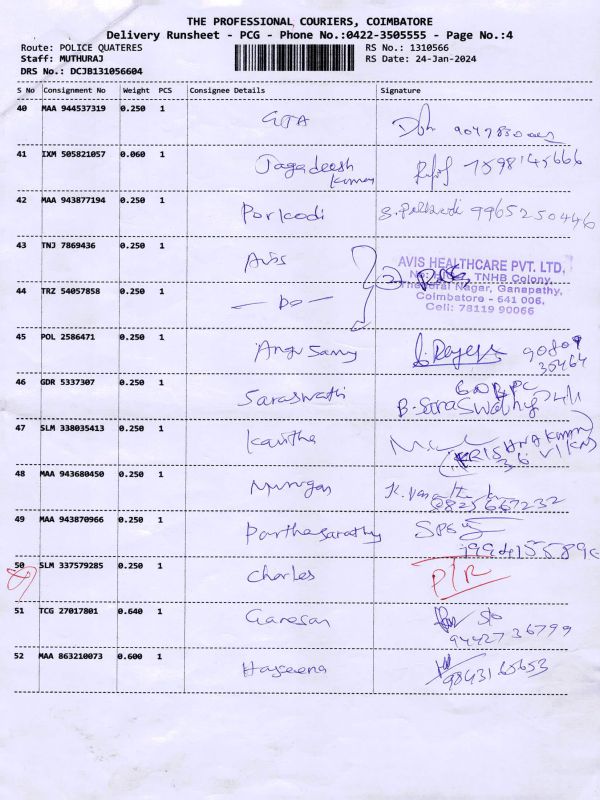 THE PROFESSIONAL COURIERS, COIMBATORE
Delivery Runsheet - PCG - Phone No.:0422-3505555 - Page No.:4
Route: POLICE QUATERES RS No.: 1310566
Staff: MUTHURAJ RS Date: 24-Jan-2024
DRS No.: DCJB131056604
S No Consignment No Weight PCS Consignee Details Signature
40 MAA 944537319 0.250 1 GTA
41 IXM 505821057 0.060 1 Jagadeesh Kumar 7598145666
42 MAA 943877194 0.250 1 Porkodi 9965250446
43 TNJ 7869436 0.250 1 Avis
AVIS HEALTHCARE PVT. LTD,
TNHB Colony,
Nagar, Ganapathy,
Coimbatore - 641 006,
Cell: 78119 90066
44 TRZ 54057858 0.250 1 - Do -
45 POL 2586471 0.250 1 Angusamy
46 GDR 5337307 0.250 1 Saraswathi B. Saraswathy
47 SLM 338035413 0.250 1 Kavitha
48 MAA 943680450 0.250 1 Murugan
49 MAA 943870966 0.250 1 Parthasarathy
50 SLM 337579285 0.250 1 Charles P/R
51 TCG 27017801 0.640 1 Ganesan S/o
9442736799
52 MAA 863210073 0.600 1 Hayseena 9843165653